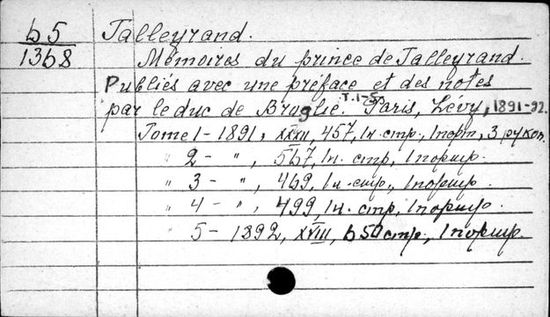 b5 Talleyrand.
1368 Mémoires du prince de Talleyrand.
Publiés avec une préface et des notes
par le duc de Broglie. T.1-5. Paris, Lévy, 1891-92.
Tome 1 - 1891, XXXII, 457, 1н. стр., 1порт., 3 рукоп.
" 2 - ", 567, 1н. стр., 1портр.
" 3 - ", 469, 1н. стр., 1портр.
" 4 - ", 499, 1н. стр., 1портр.
" 5 - 1892, XVIII, стр., 1портр.